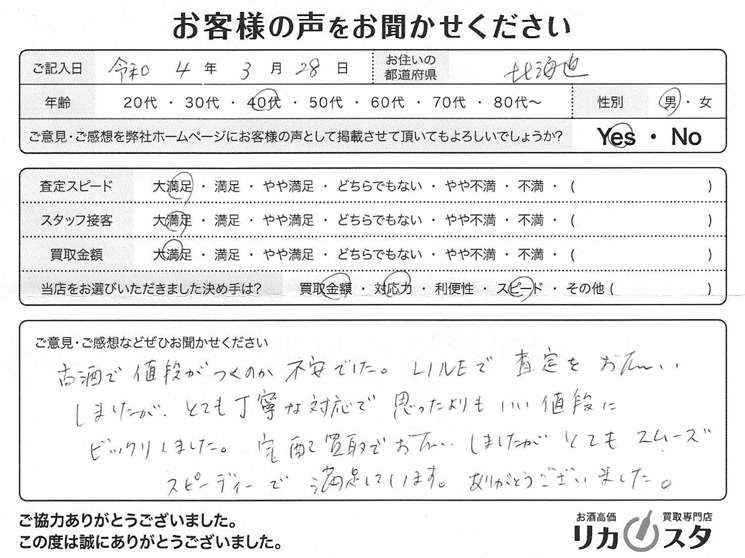 お客様の声をお聞かせください
ご記入日 令和 4 年 3 月 28 日 お住いの都道府県 北海道
年齢 20代 ・ 30代 ・ 40代 ・ 50代 ・ 60代 ・ 70代 ・ 80代〜 性別 男 ・ 女
ご意見・ご感想を弊社ホームページにお客様の声として掲載させて頂いてもよろしいでしょうか? Yes ・ No
査定スピード 大満足 ・ 満足 ・ やや満足 ・ どちらでもない ・ やや不満 ・ 不満 ・ ( )
スタッフ接客 大満足 ・ 満足 ・ やや満足 ・ どちらでもない ・ やや不満 ・ 不満 ・ ( )
買取金額 大満足 ・ 満足 ・ やや満足 ・ どちらでもない ・ やや不満 ・ 不満 ・ ( )
当店をお選びいただきました決め手は? 買取金額 ・ 対応力 ・ 利便性 ・ スピード ・ その他 ( )
ご意見・ご感想などぜひお聞かせください
古酒で値段がつくのか不安でした。LINEで査定をお願い
しましたが、とても丁寧な対応で思ったよりもいい値段に
ビックリしました。宅配買取でお願いしましたがとてもスムーズ
スピーディーで満足しています。ありがとうございました。
ご協力ありがとうございました。
この度は誠にありがとうございました。
お酒高価 買取専門店
リカスタ